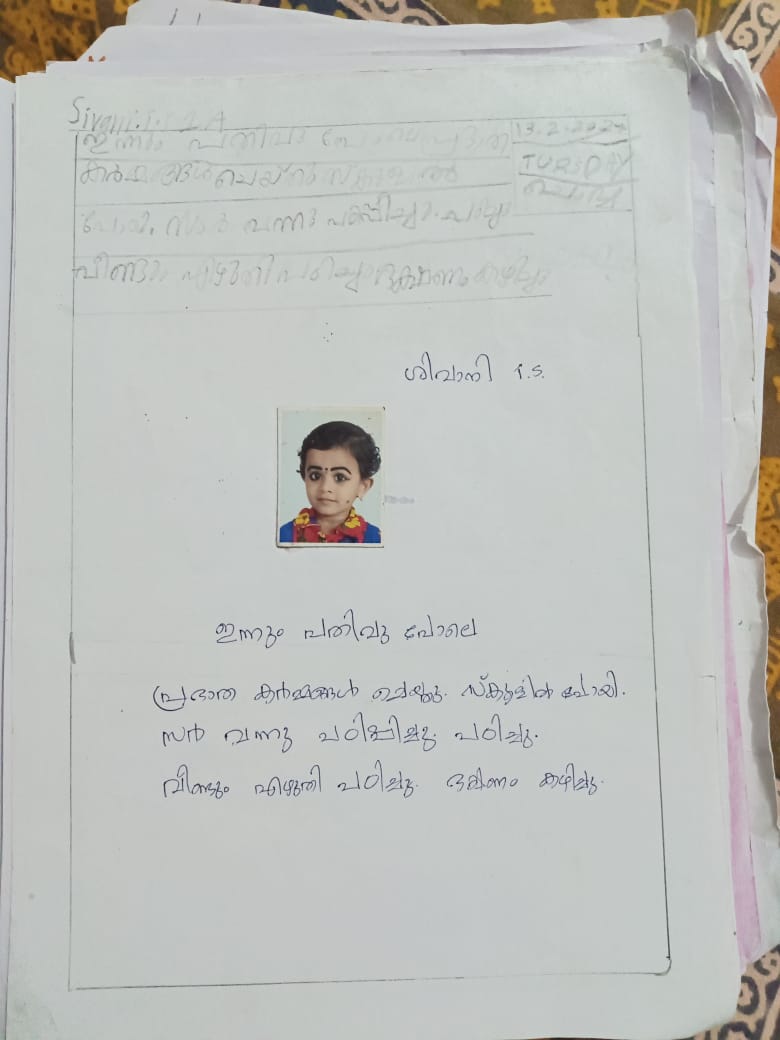 Sivani.T.S 1.A
ഇന്നും പതിവു പോലെ പ്രഭാത
13.2.2024
കർമ്മങ്ങൾ ചെയ്തു സ്കൂളിൽ
TURSDAY
ചൊവ്വ
പോയി. സാർ വന്നു പഠിപ്പിച്ചു. പഠിച്ചു
വീണ്ടും എഴുതി പഠിച്ചു ഭക്ഷണം കഴിച്ചു
ശിവാനി T.S.
ഇന്നും പതിവു പോലെ
പ്രഭാത കർമ്മങ്ങൾ ചെയ്തു. സ്കൂളിൽ പോയി.
സർ വന്നു പഠിപ്പിച്ചു. പഠിച്ചു.
വീണ്ടും എഴുതി പഠിച്ചു. ഭക്ഷണം കഴിച്ചു.